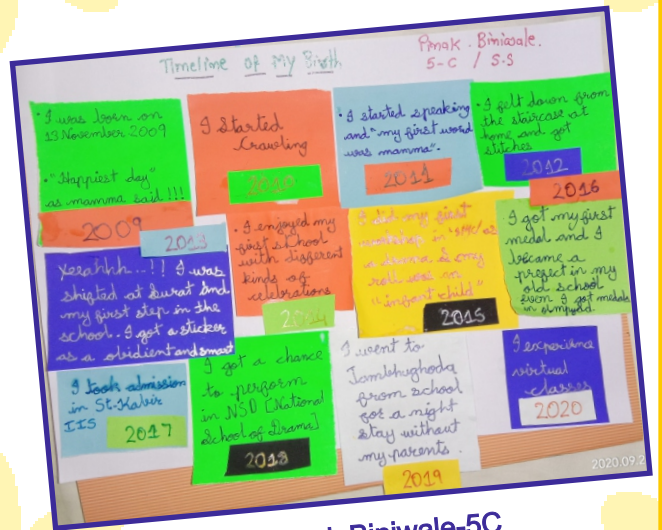 Timeline of My Birth
Pmak. Biniwale.
5-C / S.S
• I was born on
13 November 2009
• "Happiest day"
as mamma said !!!
2009
I Started
Crawling
2010
• I started speaking
and "my first word
was mamma".
2011
• I felt down from
the staircase at
home and got
stitches
2012
2013
Yeeahhh..!! I was
shifted at Surat and
my first step in the
school. I got a sticker
as a obidient and smart
• I enjoyed my
first school
with different
kinds of
celebrations
2014
I did my first
workshop in
a drama & my
roll was an
"infant child"
2015
2016
I got my first
medal and I
became a
prefect in my
old school
Even I got medals
in olmpyad.
I took admission
in St-Kabir
IIS
2017
I got a chance
to perform
in NSD [National
School of Drama]
2018
I went to
Jambhughoda
from school
for a night
stay without
my parents.
2019
I experience
virtual
classes
2020
2020.09.2
Biniwale-5C